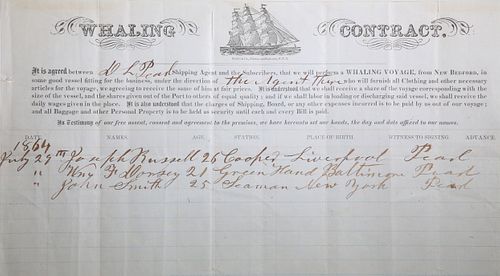 WHALING CONTRACT.
It is agreed between D L Pearl Shipping Agent and the Subscribers, that we will perform a WHALING VOYAGE, from NEW BEDFORD, in
some good vessel fitting for the business, under the direction of their Agent There who will furnish all Clothing and other necessary
articles for the voyage, we agreeing to receive the same of him at fair prices. It is Understood that we shall receive a share of the voyage corresponding with the
size of the vessel, and the shares given out of the Port to others of equal quality; and if we shall labor in loading or discharging said vessel, we shall receive the
daily wages given in the place. It is also understood that the charges of Shipping, Board, or any other expenses incurred is to be paid by us out of our voyage;
and all Baggage and other Personal Property is to be held as security until each and every Bill is paid.
In Testimony of our free assent, consent and agreement to the premises, we have hereunto set our hands, the day and date affixed to our names.
DATE. NAMES. AGE. STATION. PLACE-OF-BIRTH. WITNESS-TO-SIGNING. ADVANCE.
1864
July 29th Joseph Russell 26 Cooper Liverpool Pearl
" Wm F Dorsey 21 Green Hand Baltimore Pearl
" John Smith 25 Seaman New York Pearl